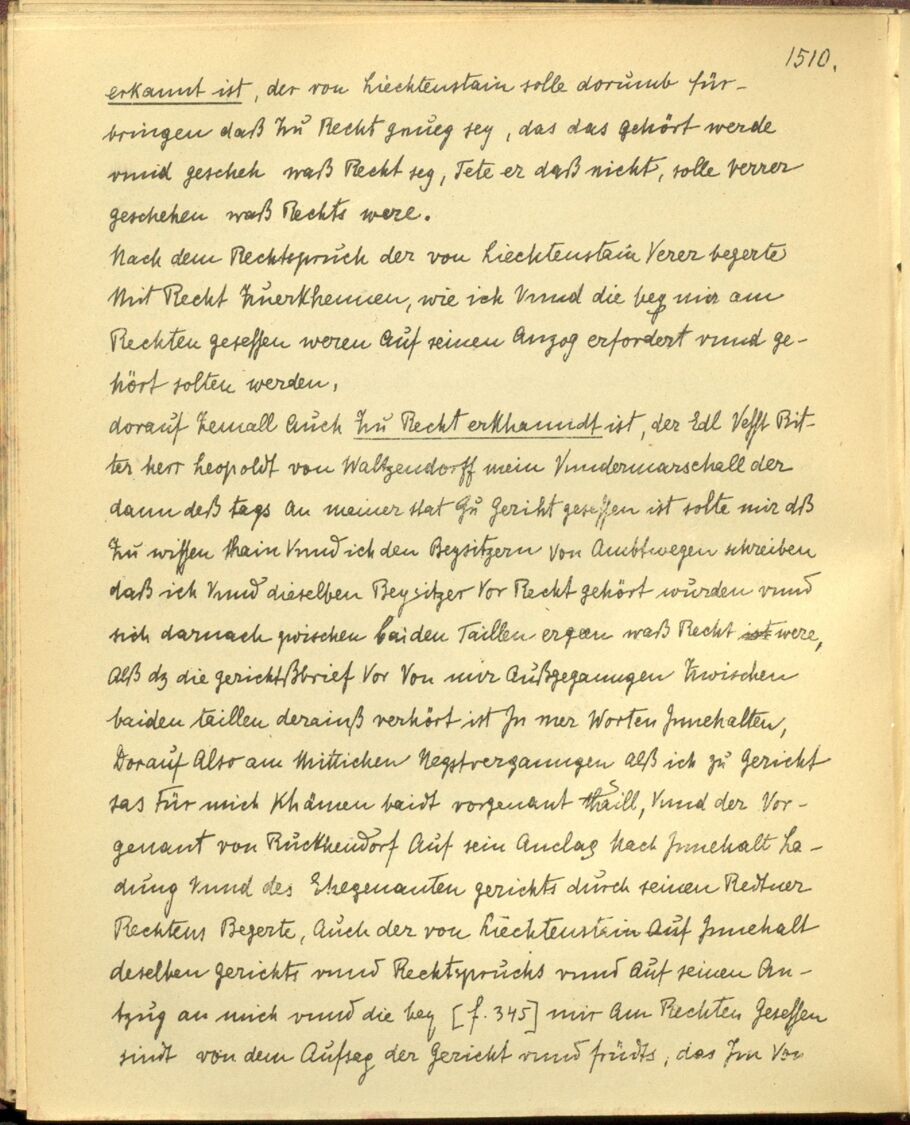 1510.
erkannt ist, der von Liechtenstain solle dorumb für-
bringen daß Zu Recht gnueg sey, das das gehört werde
vnnd gescheh waß Recht sey, Tete er daß nicht, solle Verrer
geschehen waß Rechts were.
Nach dem Rechtspruch der von Liechtenstain Verer begerte
Mit Recht Zuerkhennen, wie ich Vnnd die bey mir am
Rechten gesessen weren Auf seinen Anzog erfordert vnnd ge-
hört solten werden,
dorauf Zemall Auch Zu Recht erkhanndt ist, der Edl Vesst Rit-
ter herr Leopoldt von Waltzendorff mein Vnndermarschall der
dann deß tags An meiner stat Zu Gericht gesessen ist solte mir dß
Zu wissen thain Vnnd ich den Beysitzern Von Ambtwegen schreiben
daß ich Vnnd dieselben Beysitzer Vor Recht gehört wurden vnnd
sich darnach zwischen baiden Taillen ergeen waß Recht ist were,
Alß dz die gerichtßbrief Vor Von mir Außgeganngen Zwischen
baiden taillen derainß verhört ist In mer Worten Innehalten,
Dorauf Also am Mittichen Negstverganngen Alß ich zu Gericht
sas Für mich Khämen baidt vorgenant thäill, Vnnd der Vor-
genant von Ruckhendorf Auf sein Anclag Nach Innehalt La-
dung Vnnd des Ehegenanten gerichts durch seinen Redtner
Rechtens Begerte, Auch der von Liechtenstain Auf Innehalt
deselben gerichts vnnd Rechtspruchs vnnd Auf seinen An-
tzug an mich vnnd die bey [f. 345] mir Am Rechten Gesessen
sindt von dem Aufsag der Gericht vnnd früdts, das Im Von